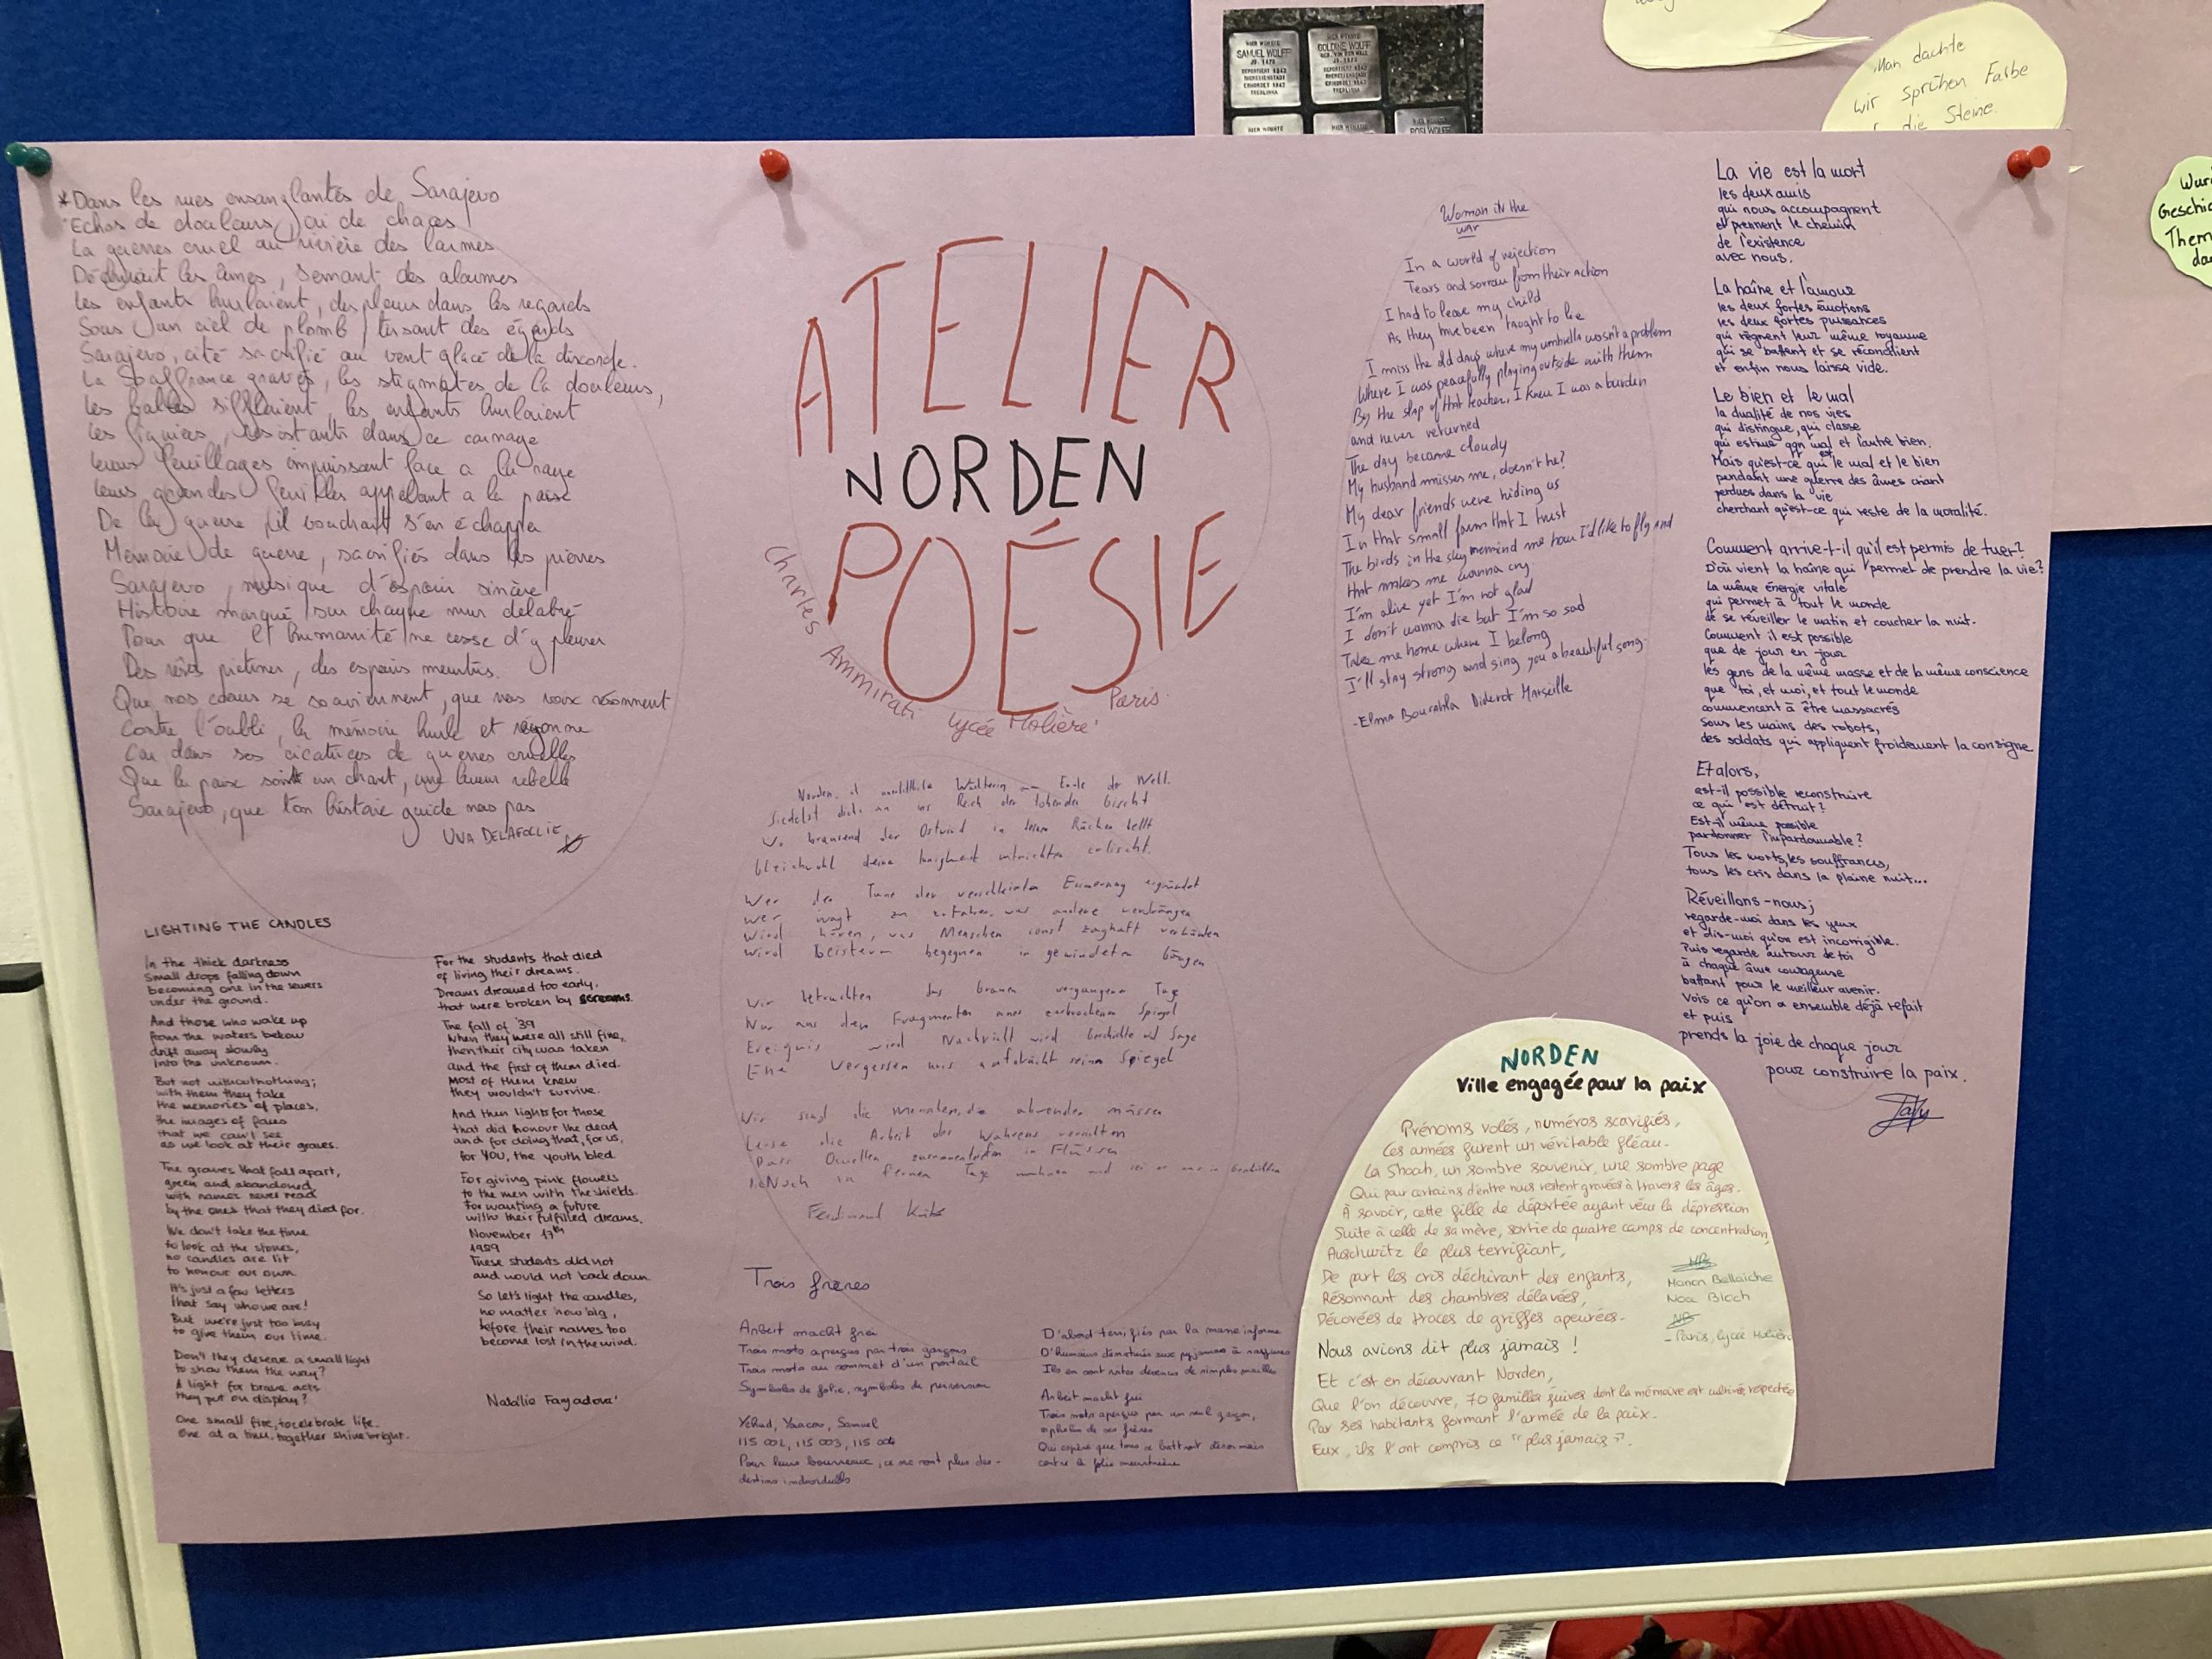 HIER WOHNTE
SAMUEL WOLFF
JG. 1878
DEPORTIERT 1942
THERESIENSTADT
ERMORDET 1942
TREBLINKA
HIER WOHNTE
GOLDINE WOLFF
DEPORTIERT 1942
THERESIENSTADT
ERMORDET 1942
TREBLINKA
HIER WOHNTE
HIER WOHNTE
HIER WOHNTE
ROSI WOLFF
Man dachte
wir sprühen Farbe
die Steine.
Wur
Geschic
Them
da
*Dans les rues ensanglantés de Sarajevo
Echos de douleurs, de
La guerres cruel au rivière des larmes
les âmes, semant des alarmes
Les enfants hurlaient, des pleurs dans les regards
Sous un ciel de plomb, tissant des égards
Sarajevo, cité sacrifié au vent glacé de la discorde.
La souffrance gravés, les stigmates de la douleurs,
Les balles sifflaient, les enfants hurlaient
Les dans ce carnage
Leurs feuillages impuissant face a la rage
Leurs grandes feuilles appelant a la paix
De la guerre, il s'en échappa
Mémoire de guerre, sacrifiés dans les pierres
Sarajevo, musique d'espoir sincère
Histoire marqué sur chaque mur délabré
Pour que l'humanité ne cesse d'y pleurer
Des rêves piétiner, des espoirs meurtris.
Que nos cœurs se souviennent, que nos voix résonnent
Contre l'oubli, la mémoire hurle et
Car dans ses cicatrices de guerres cruelles
Que la paix soit un chant, une lueur rebelle
Sarajevo, que ton histoire guide nos pas
UVA DELAFOLLIE
ATELIER
NORDEN
POÉSIE
Charles Ammirati Lycée Molière Paris
Woman in the
war
In a world of rejection
Tears and sorrow from their action
I had to leave my child
As they have been taught to lie
I miss the old days where my umbrella wasn't a problem
Where I was peacefully playing outside with them
By the slap of that teacher, I knew I was a burden
and never returned
The day became cloudy
My husband misses me, doesn't he?
My dear friends were hiding us
In that small farm that I trust
The birds in the sky remind me how I'd like to fly and
that makes me wanna cry
I'm alive yet I'm not glad
I don't wanna die but I'm so sad
Take me home where I belong
I'll stay strong and sing you a beautiful song.
-Elma Diderot Marseille
La vie est la mort
les deux amis
qui nous accompagnent
et prennent le chemin
de l'existence
avec nous.
La haîne et l'amour
les deux fortes émotions
les deux fortes puissances
qui règnent leur même royaume
qui se battent et se réconcilient
et enfin nous laisse vide.
Le bien et le mal
la dualité de nos vies
qui distingue, qui classe
qui estime qqn mal et l'autre bien.
Mais qu'est-ce qui est le mal et le bien
pendant une guerre des âmes criant
perdues dans la vie
cherchant qu'est-ce qui reste de la moralité.
Comment arrive-t-il qu'il est permis de tuer?
D'où vient la haîne qui permet de prendre la vie?
La même énergie vitale
qui permet à tout le monde
de se réveiller le matin et coucher la nuit.
Comment il est possible
que de jour en jour
les gens de la même masse et de la même conscience
que toi, et moi, et tout le monde
commencent à être massacrés
sous les mains des robots,
des soldats qui appliquent froidement la consigne
Et alors,
est-il possible reconstruire
ce qui est détruit?
Est-il même possible
pardonner l'impardonnable?
Tous les morts, les souffrances,
tous les cris dans la pleine nuit...
Réveillons-nous;
regarde-moi dans les yeux
et dis-moi qu'on est incorrigible.
Puis regarde autour de toi
à chaque âme courageuse
battant pour le meilleur avenir.
Vois ce qu'on a ensemble déjà refait
et puis
prends la joie de chaque jour
pour construire la paix.
Norden, Wächterin am Ende der Welt.
Siedelst dich an ins Reich der tobenden Gischt
Wo brausend der Ostwind in deinen Rücken bellt
Gleichwohl deine erlischt.
Wer den Tune der Erinnerung ergründet
Wer wagt zu erfahren, was andere verdrängen
Wird hören, was Menschen sonst zaghaft verkünden
Wird Geistern begegnen in gewundenen Gängen
Wir betrachten das Grauen vergangener Tage
Nur aus den Fragmenten eines zerbrochenen Spiegel
Ereignis wird Nachricht wird Geschichte und Sage
Ehe Vergessen uns seinen Spiegel
Wir sind die Menschen, die müssen
Leise die Arbeit des Wahrens
Dass Quellen in Flüssen
in fernen Tage
Ferdinand
LIGHTING THE CANDLES
In the thick darkness
Small drops falling down
becoming one in the sewers
under the ground.
And those who wake up
from the waters below
drift away slowly
into the unknown.
But not without nothing;
with them they take
the memories of places,
the images of faces
that we can't see
as we look at their graves.
The graves that fall apart,
green and abandoned
with names never read
by the ones that they died for.
We don't take the time
to look at the stones,
no candles are lit
to honour our own
It's just a few letters
that say who we are!
But we're just too busy
to give them our time.
Don't they deserve a small light
to show them the way?
A light for brave acts
they put on display?
One small fire, to celebrate life.
One at a time, together shine bright.
For the students that died
of living their dreams.
Dreams dreamed too early,
that were broken by screams.
The fall of '39
when they were all still fine,
then their city was taken
and the first of them died.
Most of them knew
they wouldn't survive.
And then lights for those
that did honour the dead
and for doing that, for us,
for YOU, the youth bled.
For giving pink flowers
to the men with the shields.
For wanting a future
with their fulfilled dreams.
November 17th
1989
These students did not
and would not back down.
So let's light the candles,
no matter how big,
before their names too
become lost in the wind.
Natálie
Trois frères
Arbeit macht frei
Trois mots aperçus par trois garçons
Trois mots au sommet d'un portail
Symboles de folie, symboles de perversion
Yehud, Yaacov, Samuel
115 002, 115 003, 115 004
Pour leurs bourreaux, ce ne sont plus des
destins individuels
D'abord terrifiés par la masse informe
D'humains dénaturés aux pyjamas à rayures
Ils en sont vites devenus de simples mailles
Arbeit macht frei
Trois mots aperçus par un seul garçon,
orphelin de ses frères
Qui espère que tous se battront désormais
contre la folie meurtrière
NORDEN
Ville engagée pour la paix
Prénoms volés, numéros scarifiés,
Ces années furent un véritable fléau.
La Shoah, un sombre souvenir, une sombre page
Qui pour certains d'entre nous restent gravées à travers les âges.
À savoir, cette fille de déportée ayant vécu la dépression
Suite à celle de sa mère, sortie de quatre camps de concentration,
Auschwitz le plus terrifiant,
De part les cris déchirant des enfants,
Résonnant des chambres délavées,
Décorées de traces de griffes apeurées.
Nous avions dit plus jamais !
Et c'est en découvrant Norden,
Que l'on découvre, 70 familles juives dont la mémoire est cultivée, respectée
Par ses habitants formant l'armée de la paix.
Eux, ils l'ont compris ce "plus jamais".
Manon Bellaiche
Noa Bloch
- Paris, lycée Molière